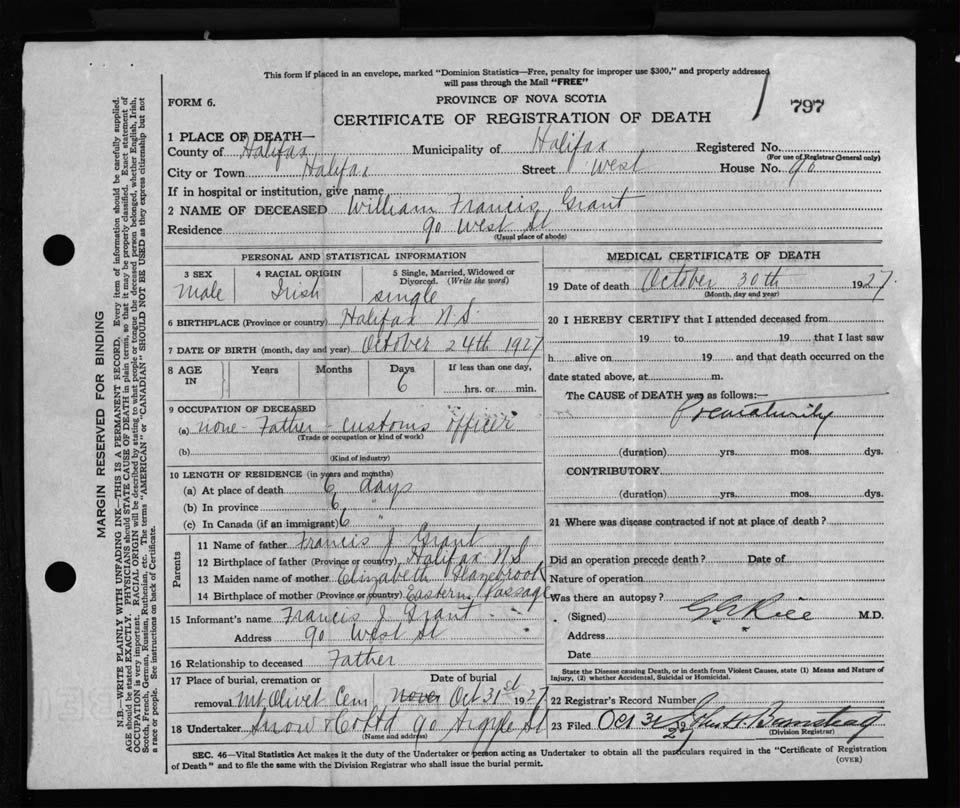 This form if placed in an envelope, marked "Dominion Statistics—Free, penalty for improper use $300," and properly addressed
will pass through the Mail "FREE"
FORM 6.
PROVINCE OF NOVA SCOTIA
797
CERTIFICATE OF REGISTRATION OF DEATH
1 PLACE OF DEATH—
County of Halifax Municipality of Halifax Registered No.
(For use of Registrar General only)
City or Town Halifax Street West House No. 90
If in hospital or institution, give name
2 NAME OF DECEASED William Francis Grant
Residence 90 West St
(Usual place of abode)
PERSONAL AND STATISTICAL INFORMATION
3 SEX Male
4 RACIAL ORIGIN Irish
5 Single, Married, Widowed or Divorced. (Write the word) single
6 BIRTHPLACE (Province or country) Halifax N.S.
7 DATE OF BIRTH (month, day and year) October 24th 1927
8 AGE IN Years Months Days 6 If less than one day, hrs. or min.
9 OCCUPATION OF DECEASED
(a) none - Father - customs officer
(Trade or occupation or kind of work)
(b)
(Kind of industry)
10 LENGTH OF RESIDENCE (in years and months)
(a) At place of death 6 days
(b) In province 6 "
(c) In Canada (if an immigrant) 6 "
Parents
11 Name of father Francis J Grant
12 Birthplace of father (Province or country) Halifax N S
13 Maiden name of mother Elizabeth
14 Birthplace of mother (Province or country) Eastern Passage
15 Informant's name Francis J Grant
Address 90 West St
16 Relationship to deceased Father
17 Place of burial, cremation or removal Mt Olivet Cem Date of burial Nov Oct 31st 1927
18 Undertaker Snow & Co Ltd 90 Argyle St
(Name and address)
MEDICAL CERTIFICATE OF DEATH
19 Date of death October 30th 1927
(Month, day and year)
20 I HEREBY CERTIFY that I attended deceased from
19 to 19 that I last saw
h alive on 19 and that death occurred on the
date stated above, at m.
The CAUSE of DEATH was as follows:—
Prematurity
(duration) yrs. mos. dys.
CONTRIBUTORY
(duration) yrs. mos. dys.
21 Where was disease contracted if not at place of death?
Did an operation precede death? Date of
Nature of operation
Was there an autopsy?
(Signed) Rice M.D.
Address
Date
State the Disease causing Death, or in death from Violent Causes, state (1) Means and Nature of
Injury, (2) whether Accidental, Suicidal or Homicidal.
22 Registrar's Record Number
23 Filed Oct 31
(Division Registrar)
SEC. 46—Vital Statistics Act makes it the duty of the Undertaker or person acting as Undertaker to obtain all the particulars required in the "Certificate of Registration
of Death" and to file the same with the Division Registrar who shall issue the burial permit.
(OVER)
MARGIN RESERVED FOR BINDING
N.B.—WRITE PLAINLY WITH UNFADING INK—THIS IS A PERMANENT RECORD. Every item of information should be carefully supplied.
AGE should be stated EXACTLY. PHYSICIANS should STATE CAUSE OF DEATH in plain terms, so that it may be properly classified. Exact statement of
OCCUPATION is very important. RACIAL ORIGIN will be described by stating to what people or tongue the deceased person belonged, whether English, Irish,
Scotch, French, German, Russian, Ruthenian, etc. The terms "AMERICAN" or "CANADIAN" SHOULD NOT BE USED as they express citizenship but not
a race or people. See instructions on back of Certificate.